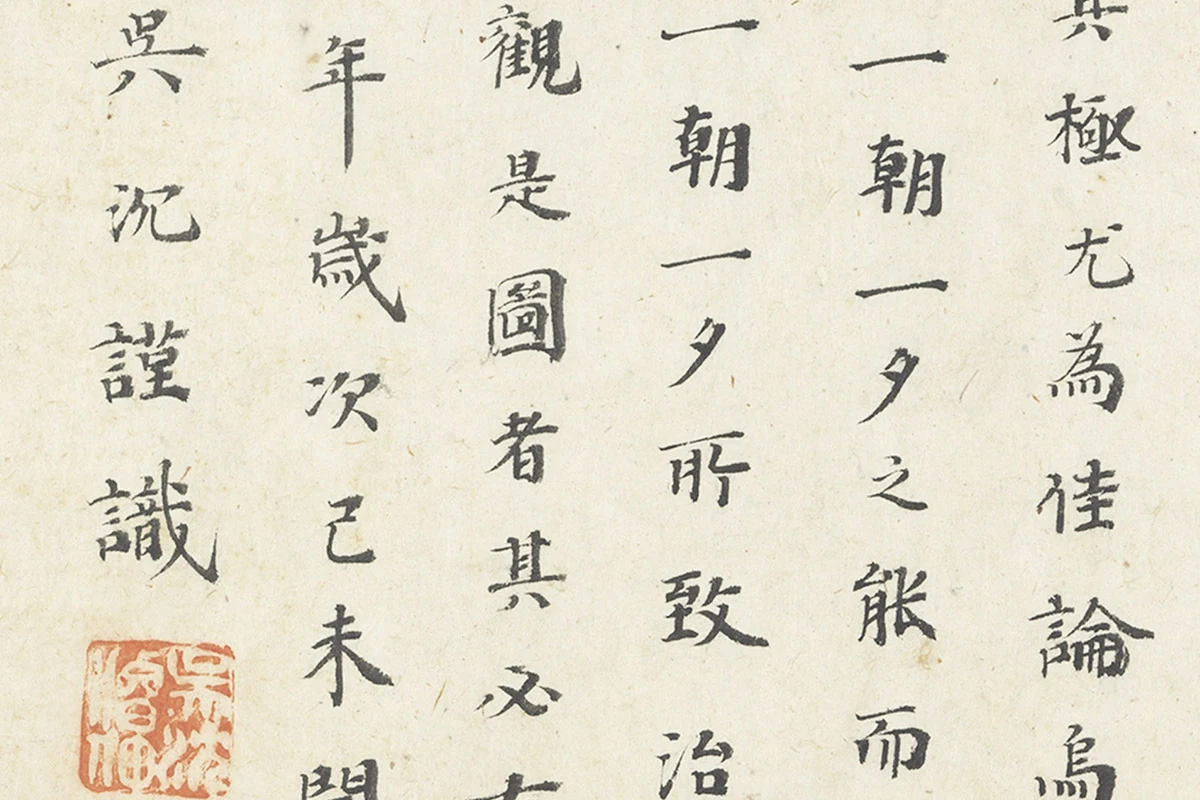 其極尤為佳論烏
一朝一夕之能而
一朝一夕所致治
觀是圖者其必有
年歲次己未閏
吳沉謹識